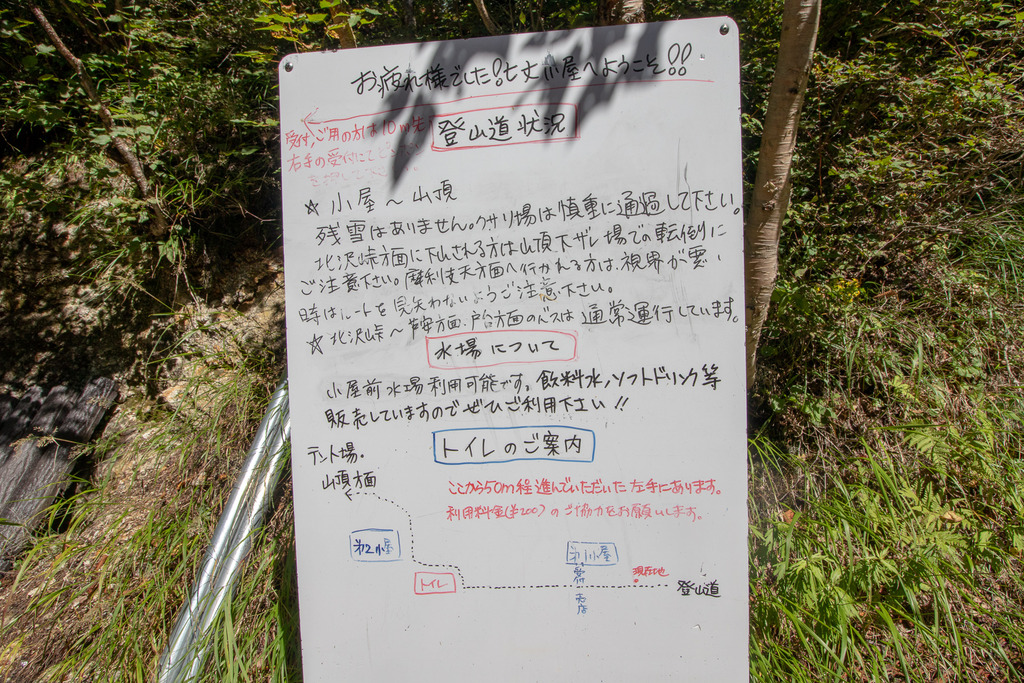 お疲れ様でした!七丈小屋へようこそ!!
受付、ご用の方は10m先
右手の受付にて
登山道状況
☆ 小屋～山頂
残雪はありません。クサリ場は慎重に通過して下さい。
北沢峠方面に下山される方は山頂下ザレ場での転倒に
ご注意下さい。摩利支天方面へ行かれる方は、視界が悪い
時はルートを見失わないようご注意下さい。
☆ 北沢峠～ 方面、戸台方面のバスは通常運行しています。
水場について
小屋前水場利用可能です。飲料水、ソフトドリンク等
販売していますのでぜひご利用下さい!!
トイレのご案内
テント場・
山頂方面
ここから50m程進んでいただいた左手にあります。
利用料金(¥200)のご協力をお願いします。
第2小屋
第1小屋
トイレ
受付
売店
現在地
登山道